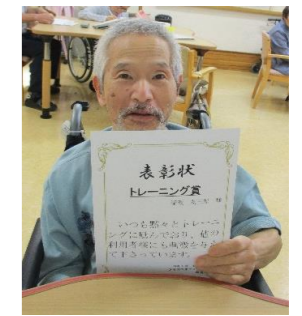 表彰状
トレーニング賞
いつも黙々とトレーニ
ングに励んでおり、他の
利用者様にも刺激を与え
て下さっています。